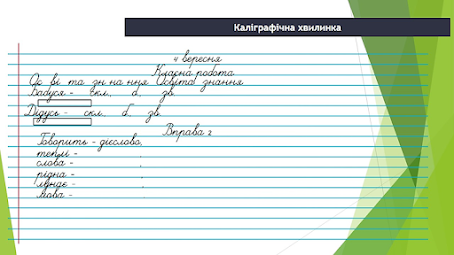 Каліграфічна хвилинка
4 вересня
Класна робота
Ос ві та зн на ння Освіта знання
Бабуся - скл., б. зв.
Дідусь - скл. б. зв.
Вправа 2
Говорить - дієслово,
теплі - ,
слова - ,
рідна - ,
лунає - ,
мова - .